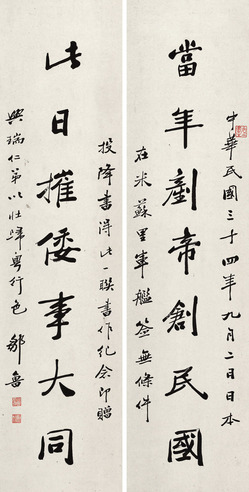 中華民國三十四年九月二日日本
當年剷帝創民國
在米蘇里軍艦簽無條件
投降書得此一聯書作紀念即贈
此日摧倭事大同
興瑞仁弟以壯歸粵行色 鄒魯